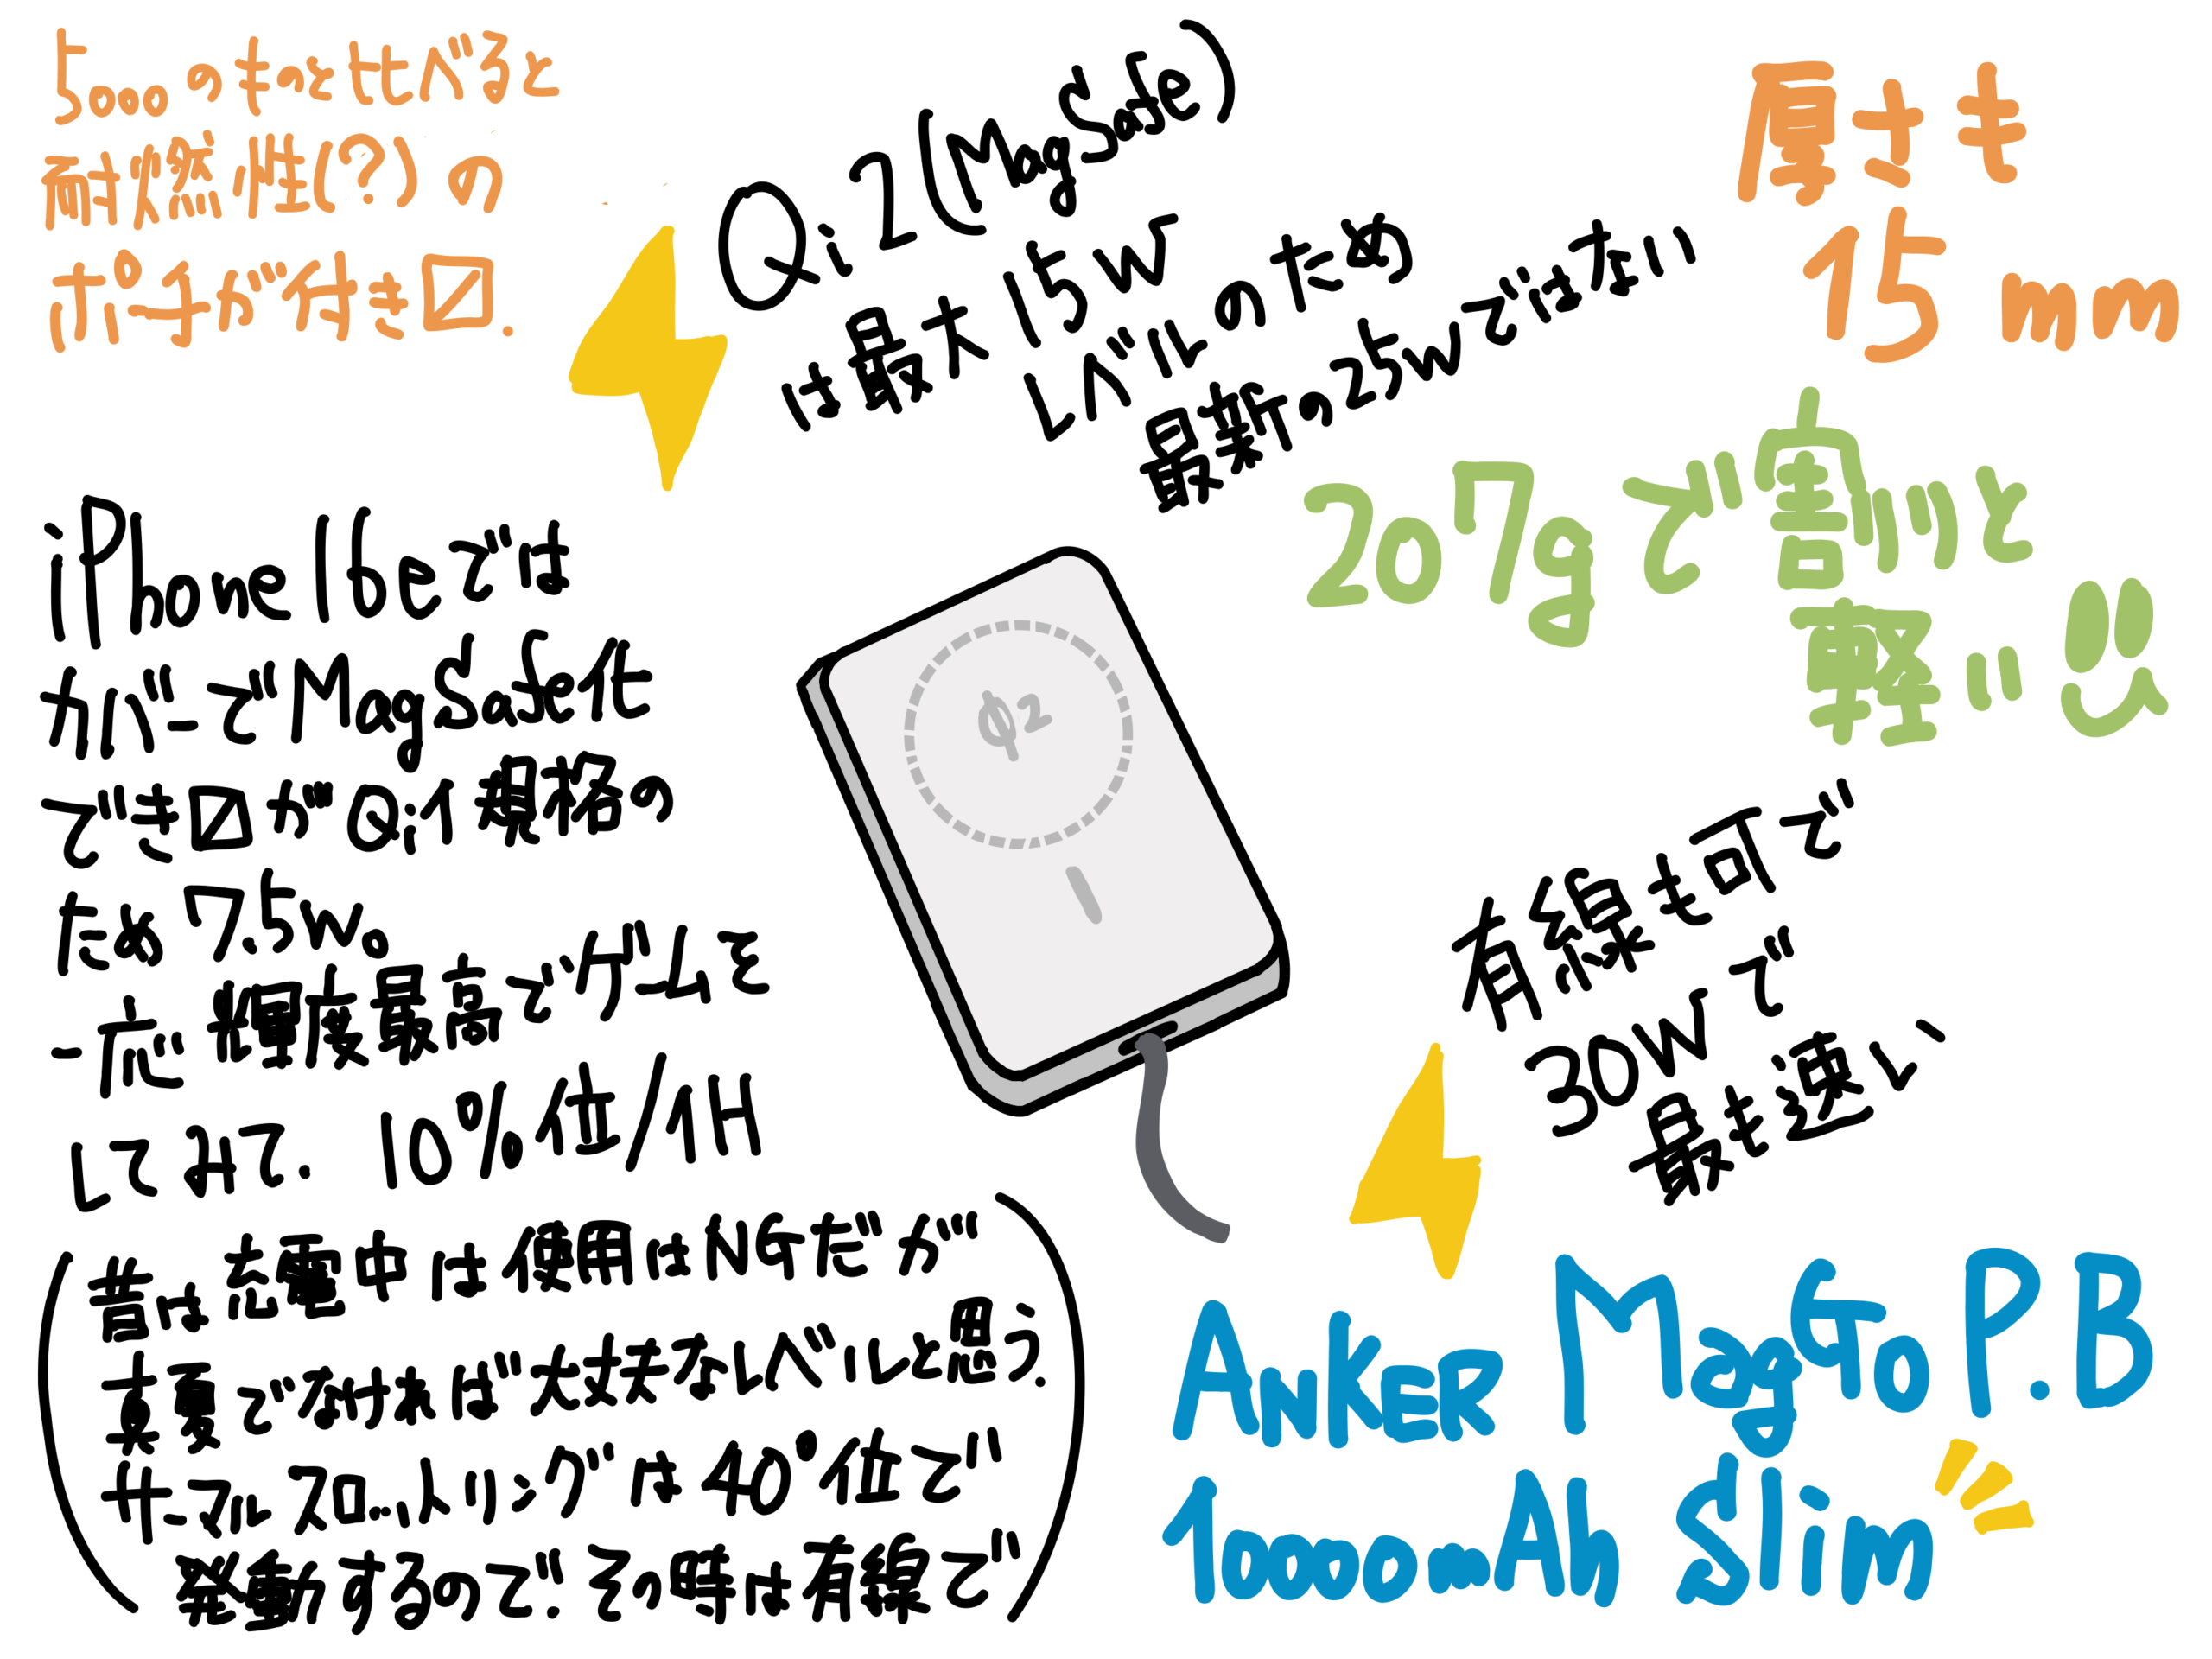 5000のものと比べると
耐燃性(?)の
ポーチが付き〼.
Qi2(MagSafe)
は最大15W
レベルのため
最新の25Wではない
厚さも
15mm
207gで割と
軽い!!
iPhone16eでは
カバーでMagSafe化
でき〼がQi1規格の
ため7.5W。
一応輝度最高でゲームを
してみて. 10%位/1H
(昔は充電中は使用はNGだが
真夏でなければ大丈夫なレベルと思う.
サーマルスロットリングは40°位で
発動するので.その時は有線で)
Qi2
有線も可で
30Wで
最も速い
ANKER MagGo P.B
10000mAh Slim